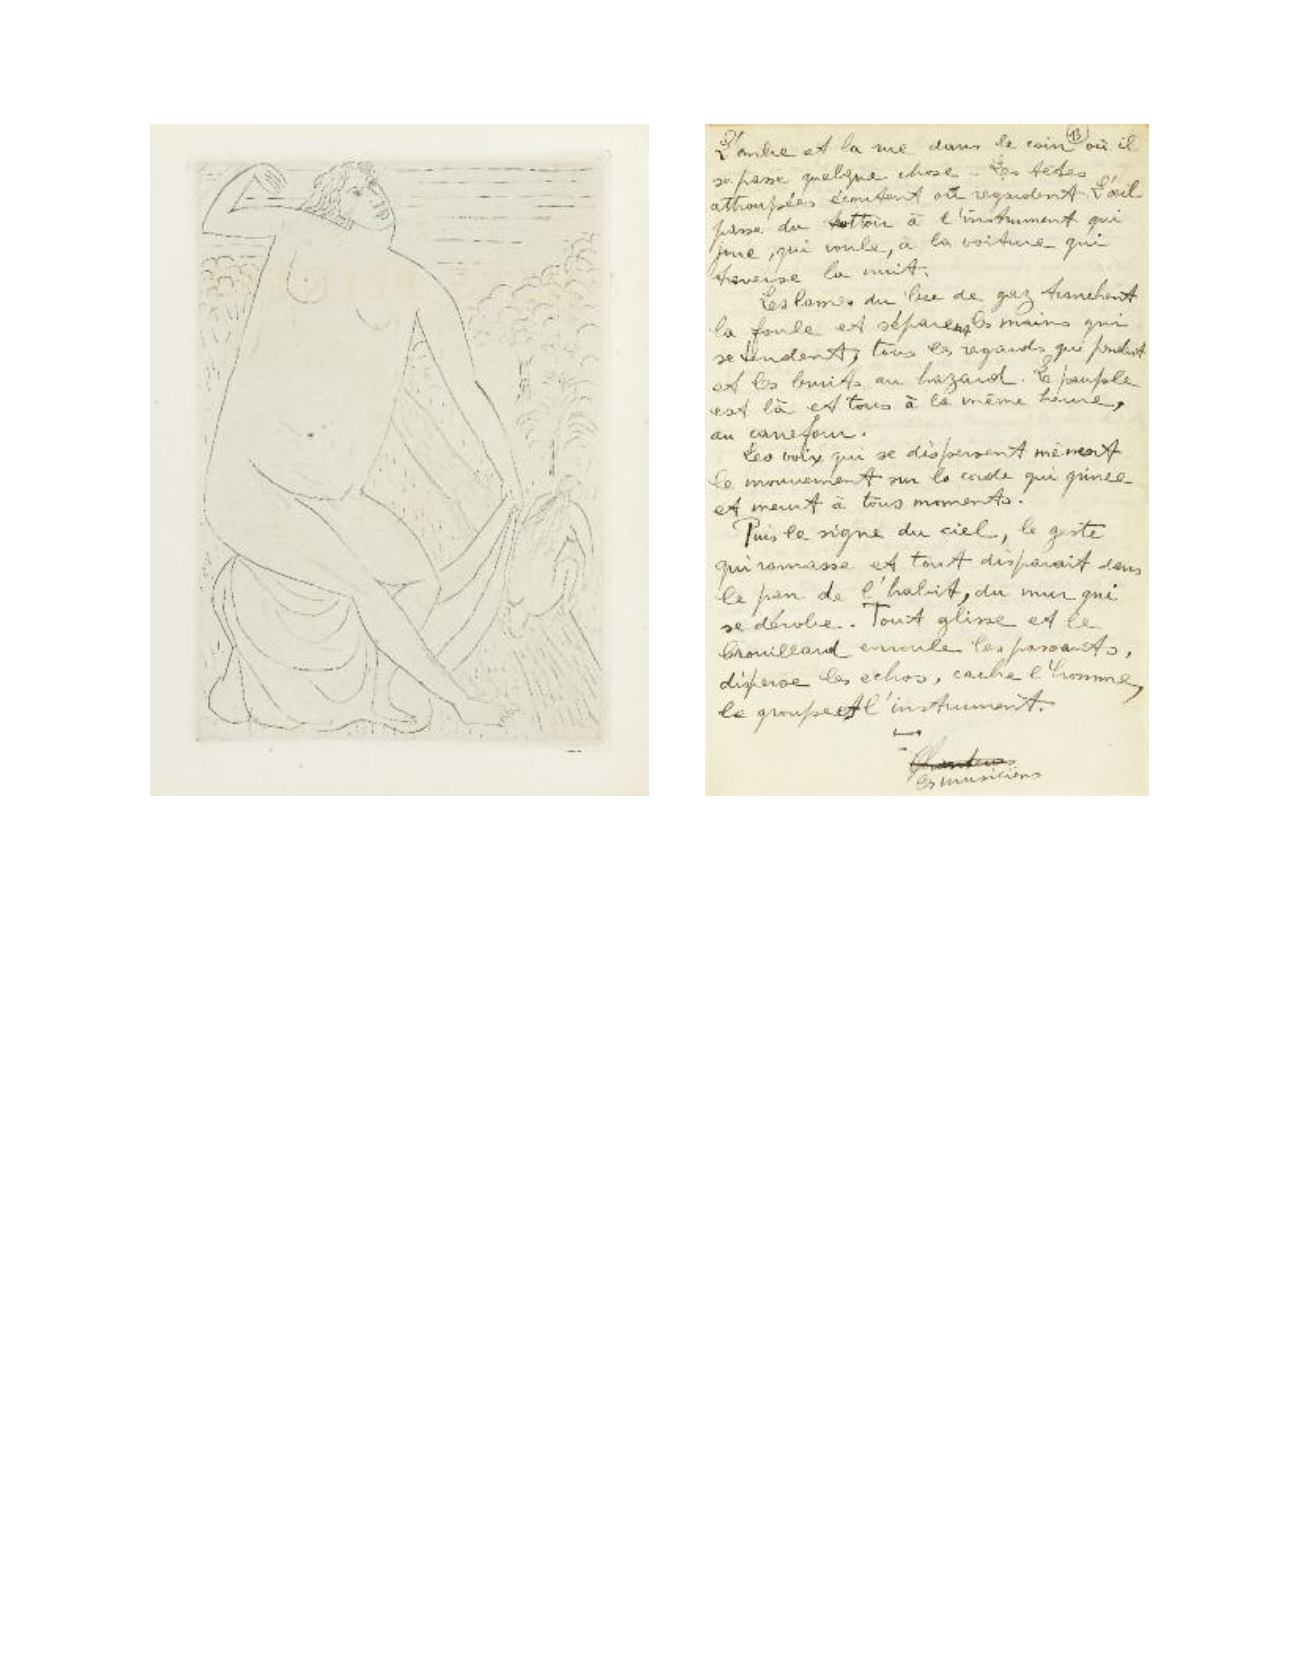 13
L'ombre et la rue dans le coin où il
se passe quelque chose - Les têtes
attroupées écoutent ou regardent. L'œil
passe du trottoir à l'instrument qui
joue, qui roule, à la voiture qui
traverse la nuit.
Les lames du bec de gaz tranchent
la foule et séparent les mains qui
se tendent, tous les regards qui pendent
et les bruits au hazard. Le peuple
est là et tous à la même heure,
au carrefour.
Les voix qui se dispersent mènent
le mouvement sur la corde qui grince
et meurt à tous moments.
Puis le signe du ciel, le geste
qui ramasse et tout disparait dans
le pan de l'habit, du mur qui
se dérobe. Tout glisse et le
brouillard enroule les passants,
disperse les echos, cache l'homme,
le groupe et l'instrument.
les musiciens